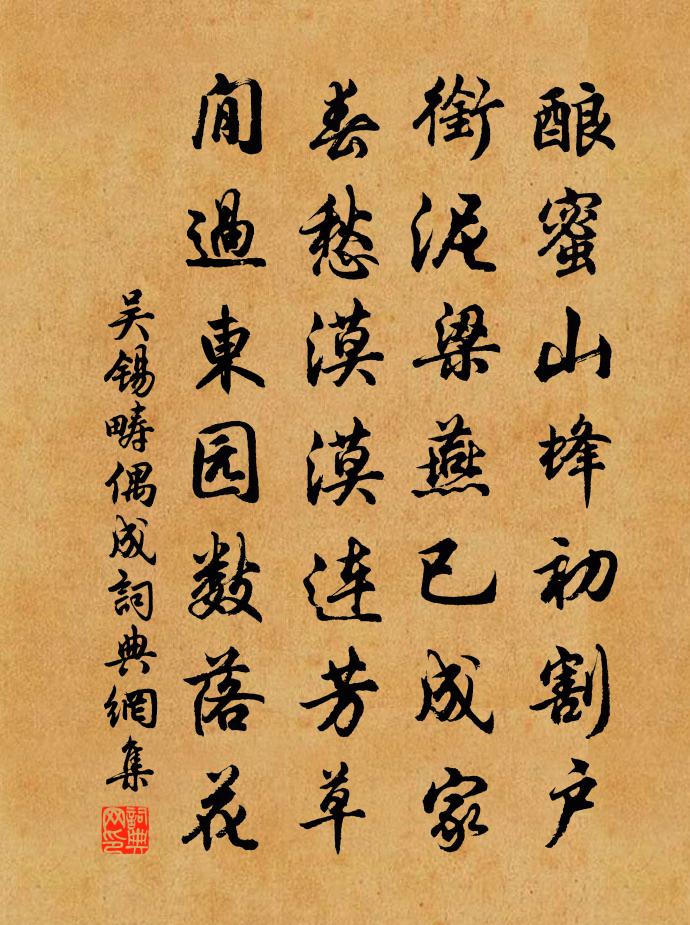 酿蜜山蜂初割户
衔泥梁燕已成家
春愁漠漠连芳草
閒過東园数落花
吴锡畴偶成詞典網集
詞典网印